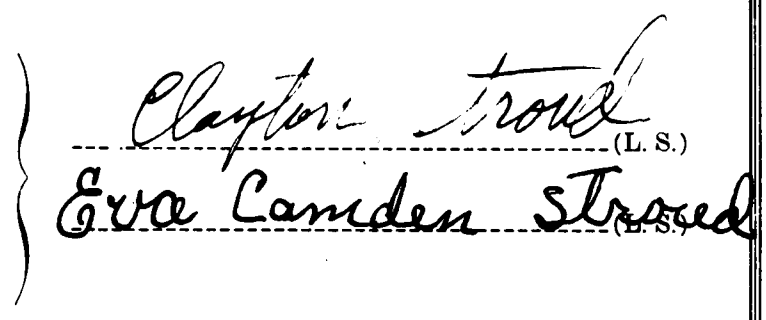 Clayton Stroud (L. S.)
Eva Camden Stroud (L. S.)